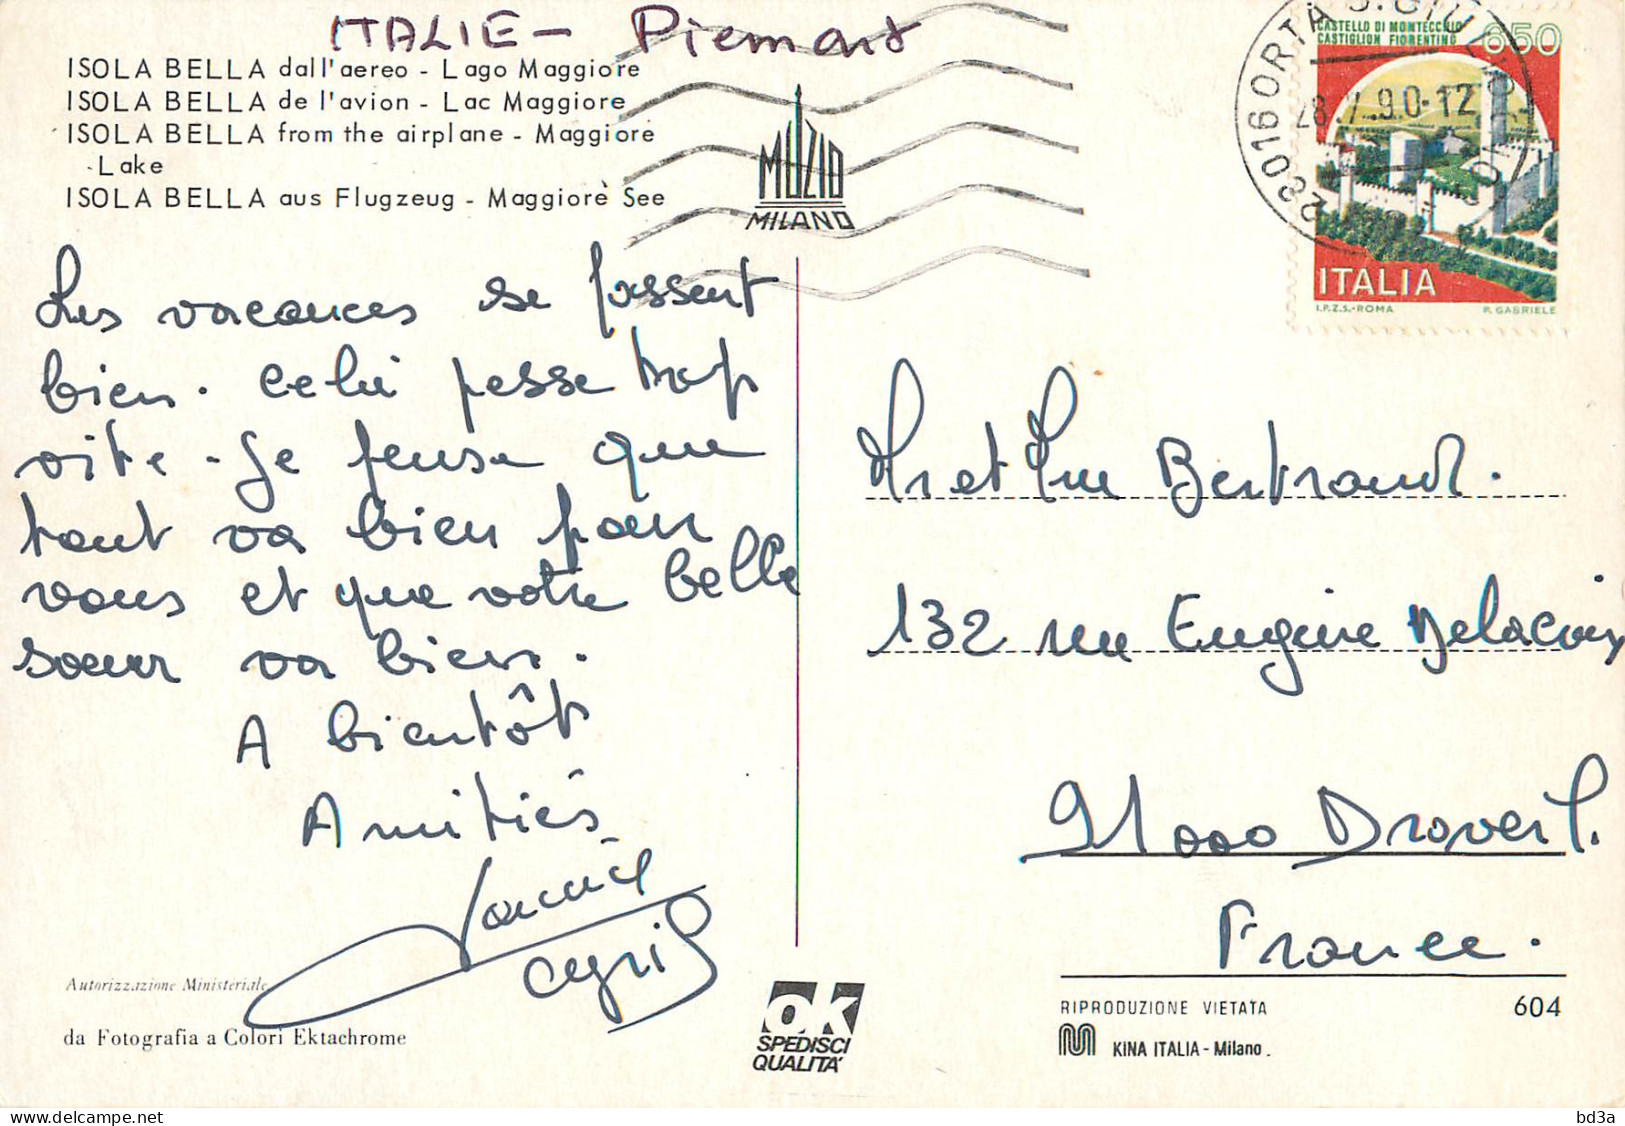 ITALIE - Piemont
ISOLA BELLA dall'aereo - Lago Maggiore
ISOLA BELLA de l'avion - Lac Maggiore
ISOLA BELLA from the airplane - Maggiore
Lake
ISOLA BELLA aus Flugzeug - Maggiorè See
MUZIO
MILANO
CASTELLO DI MONTECCHIO
CASTIGLION FIORENTINO
650
28016 ORTA S. GIULIO
90-12
ITALIA
I.P.Z.S.-ROMA
P. GABRIELE
Les vacances se passent
bien. Celà passe trop
vite - Je pense que
tout va bien pour
vous et que votre belle
sœur va bien.
A bientôt
Amitiés
Cyril
Mr et Me Bertrand.
132 rue Eugène Delacroix
91000 Draveil.
France.
Autorizzazione Ministeriale
da Fotografia a Colori Ektachrome
OK
SPEDISCI
QUALITA'
RIPRODUZIONE VIETATA
604
KINA ITALIA - Milano.
bd3a